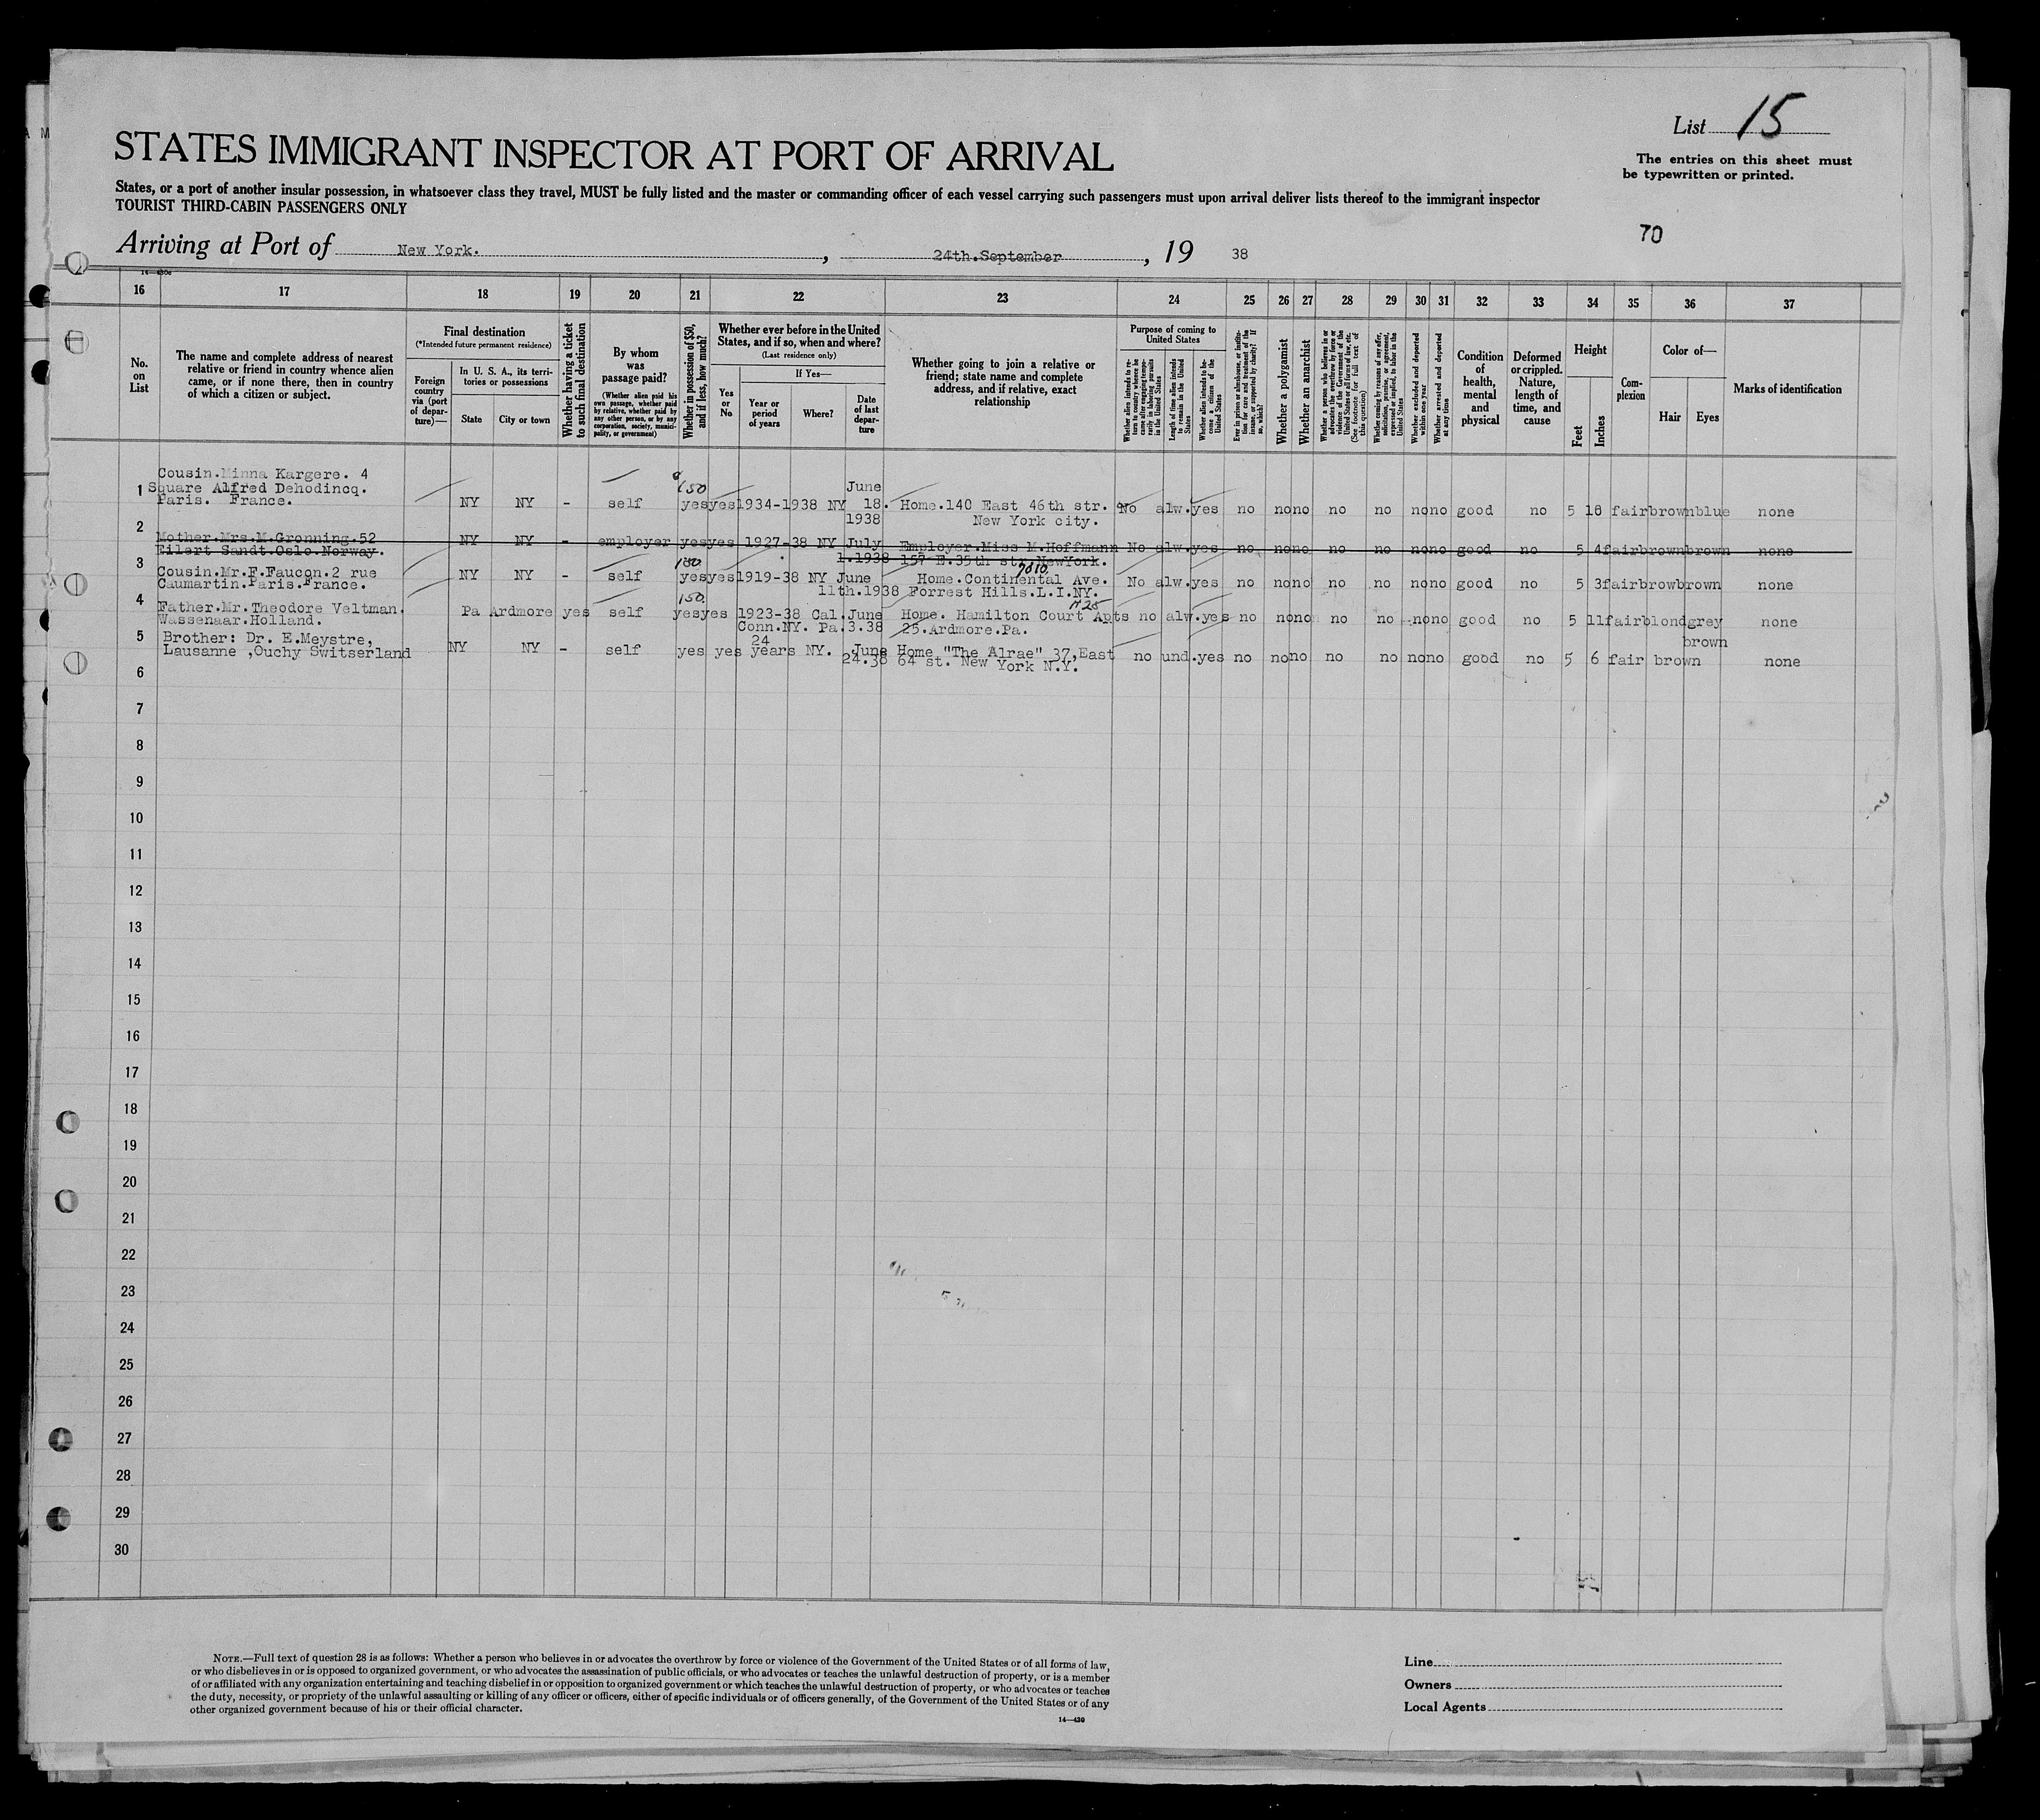 List 15
STATES IMMIGRANT INSPECTOR AT PORT OF ARRIVAL
The entries on this sheet must
be typewritten or printed.
States, or a port of another insular possession, in whatsoever class they travel, MUST be fully listed and the master or commanding officer of each vessel carrying such passengers must upon arrival deliver lists thereof to the immigrant inspector
TOURIST THIRD-CABIN PASSENGERS ONLY
70
Arriving at Port of New York. , 24th.September , 19 38
16 17 18 19 20 21 22 23 24 25 26 27 28 29 30 31 32 33 34 35 36 37
No. on List
The name and complete address of nearest relative or friend in country whence alien came, or if none there, then in country of which a citizen or subject.
Final destination
(*Intended future permanent residence)
Foreign country via (port of departure)—
In U. S. A., its territories or possessions
State
City or town
Whether having a ticket to such final destination
By whom was passage paid?
(Whether alien paid his own passage, whether paid by relative, whether paid by any other person, or by any corporation, society, municipality, or government)
Whether in possession of $50, and if less, how much?
Whether ever before in the United States, and if so, when and where?
(Last residence only)
Yes or No
If Yes—
Year or period of years
Where?
Date of last departure
Whether going to join a relative or friend; state name and complete address, and if relative, exact relationship
Purpose of coming to United States
Whether alien intends to return to country whence he came after engaging temporarily in laboring pursuits in the United States
Length of time alien intends to remain in the United States
Whether alien intends to become a citizen of the United States
Ever in prison or almshouse, or institution for care and treatment of the insane, or supported by charity? If so, which?
Whether a polygamist
Whether an anarchist
Whether a person who believes in or advocates the overthrow by force or violence of the Government of the United States or all forms of law, etc. (See footnote for full text of this question)
Whether coming by reasons of any offer, solicitation, promise, or agreement, expressed or implied, to labor in the United States
Whether excluded and deported within one year
Whether arrested and deported at any time
Condition of health, mental and physical
Deformed or crippled. Nature, length of time, and cause
Height
Feet
Inches
Complexion
Color of—
Hair
Eyes
Marks of identification
1 Cousin.Minna Kargere. 4
Square Alfred Dehodincq.
Paris. France. NY NY - self 150 yes yes 1934-1938 NY June 18. 1938 Home.140 East 46th str.
New York city. No alw. yes no no no no no no no good no 5 10 fair brown blue none
2 Mother.Mrs.M.Gronning.52
Eilert Sandt.Oslo.Norway. NY NY - employer yes yes 1927-38 NY July 1.1938 Employer.Miss M.Hoffmann
157 E.35th str.NewYork. No alw. yes no no no no no no no good no 5 4 fair brown brown none
3 Cousin.Mr.F.Faucon.2 rue
Caumartin.Paris.France. NY NY - self 180 yes yes 1919-38 NY June 11th.1938 Home.Continental Ave. 7010
Forrest Hills.L.I.NY. No alw. yes no no no no no no no good no 5 3 fair brow brown none
4 Father.Mr.Theodore Veltman.
Wassenaar.Holland. Pa Ardmore yes self 150. yes yes 1923-38 Cal. Conn.NY. Pa. June 3.38 Home. Hamilton Court Apts
25.Ardmore.Pa. no alw. yes no no no no no no no good no 5 11 fair blond grey none
5 Brother: Dr. E.Meystre,
Lausanne ,Ouchy Switserland NY NY - self yes yes 24 years NY. June 24.38 Home "The Alrae" 37,East
64 st. New York N.Y. no und. yes no no no no no no no good no 5 6 fair brown brown none
6
7
8
9
10
11
12
13
14
15
16
17
18
19
20
21
22
23
24
25
26
27
28
29
30
NOTE.—Full text of question 28 is as follows: Whether a person who believes in or advocates the overthrow by force or violence of the Government of the United States or of all forms of law,
or who disbelieves in or is opposed to organized government, or who advocates the assassination of public officials, or who advocates or teaches the unlawful destruction of property, or is a member
of or affiliated with any organization entertaining and teaching disbelief in or opposition to organized government or which teaches the unlawful destruction of property, or who advocates or teaches
the duty, necessity, or propriety of the unlawful assaulting or killing of any officer or officers, either of specific individuals or of officers generally, of the Government of the United States or of any
other organized government because of his or their official character.
14—430
Line
Owners
Local Agents